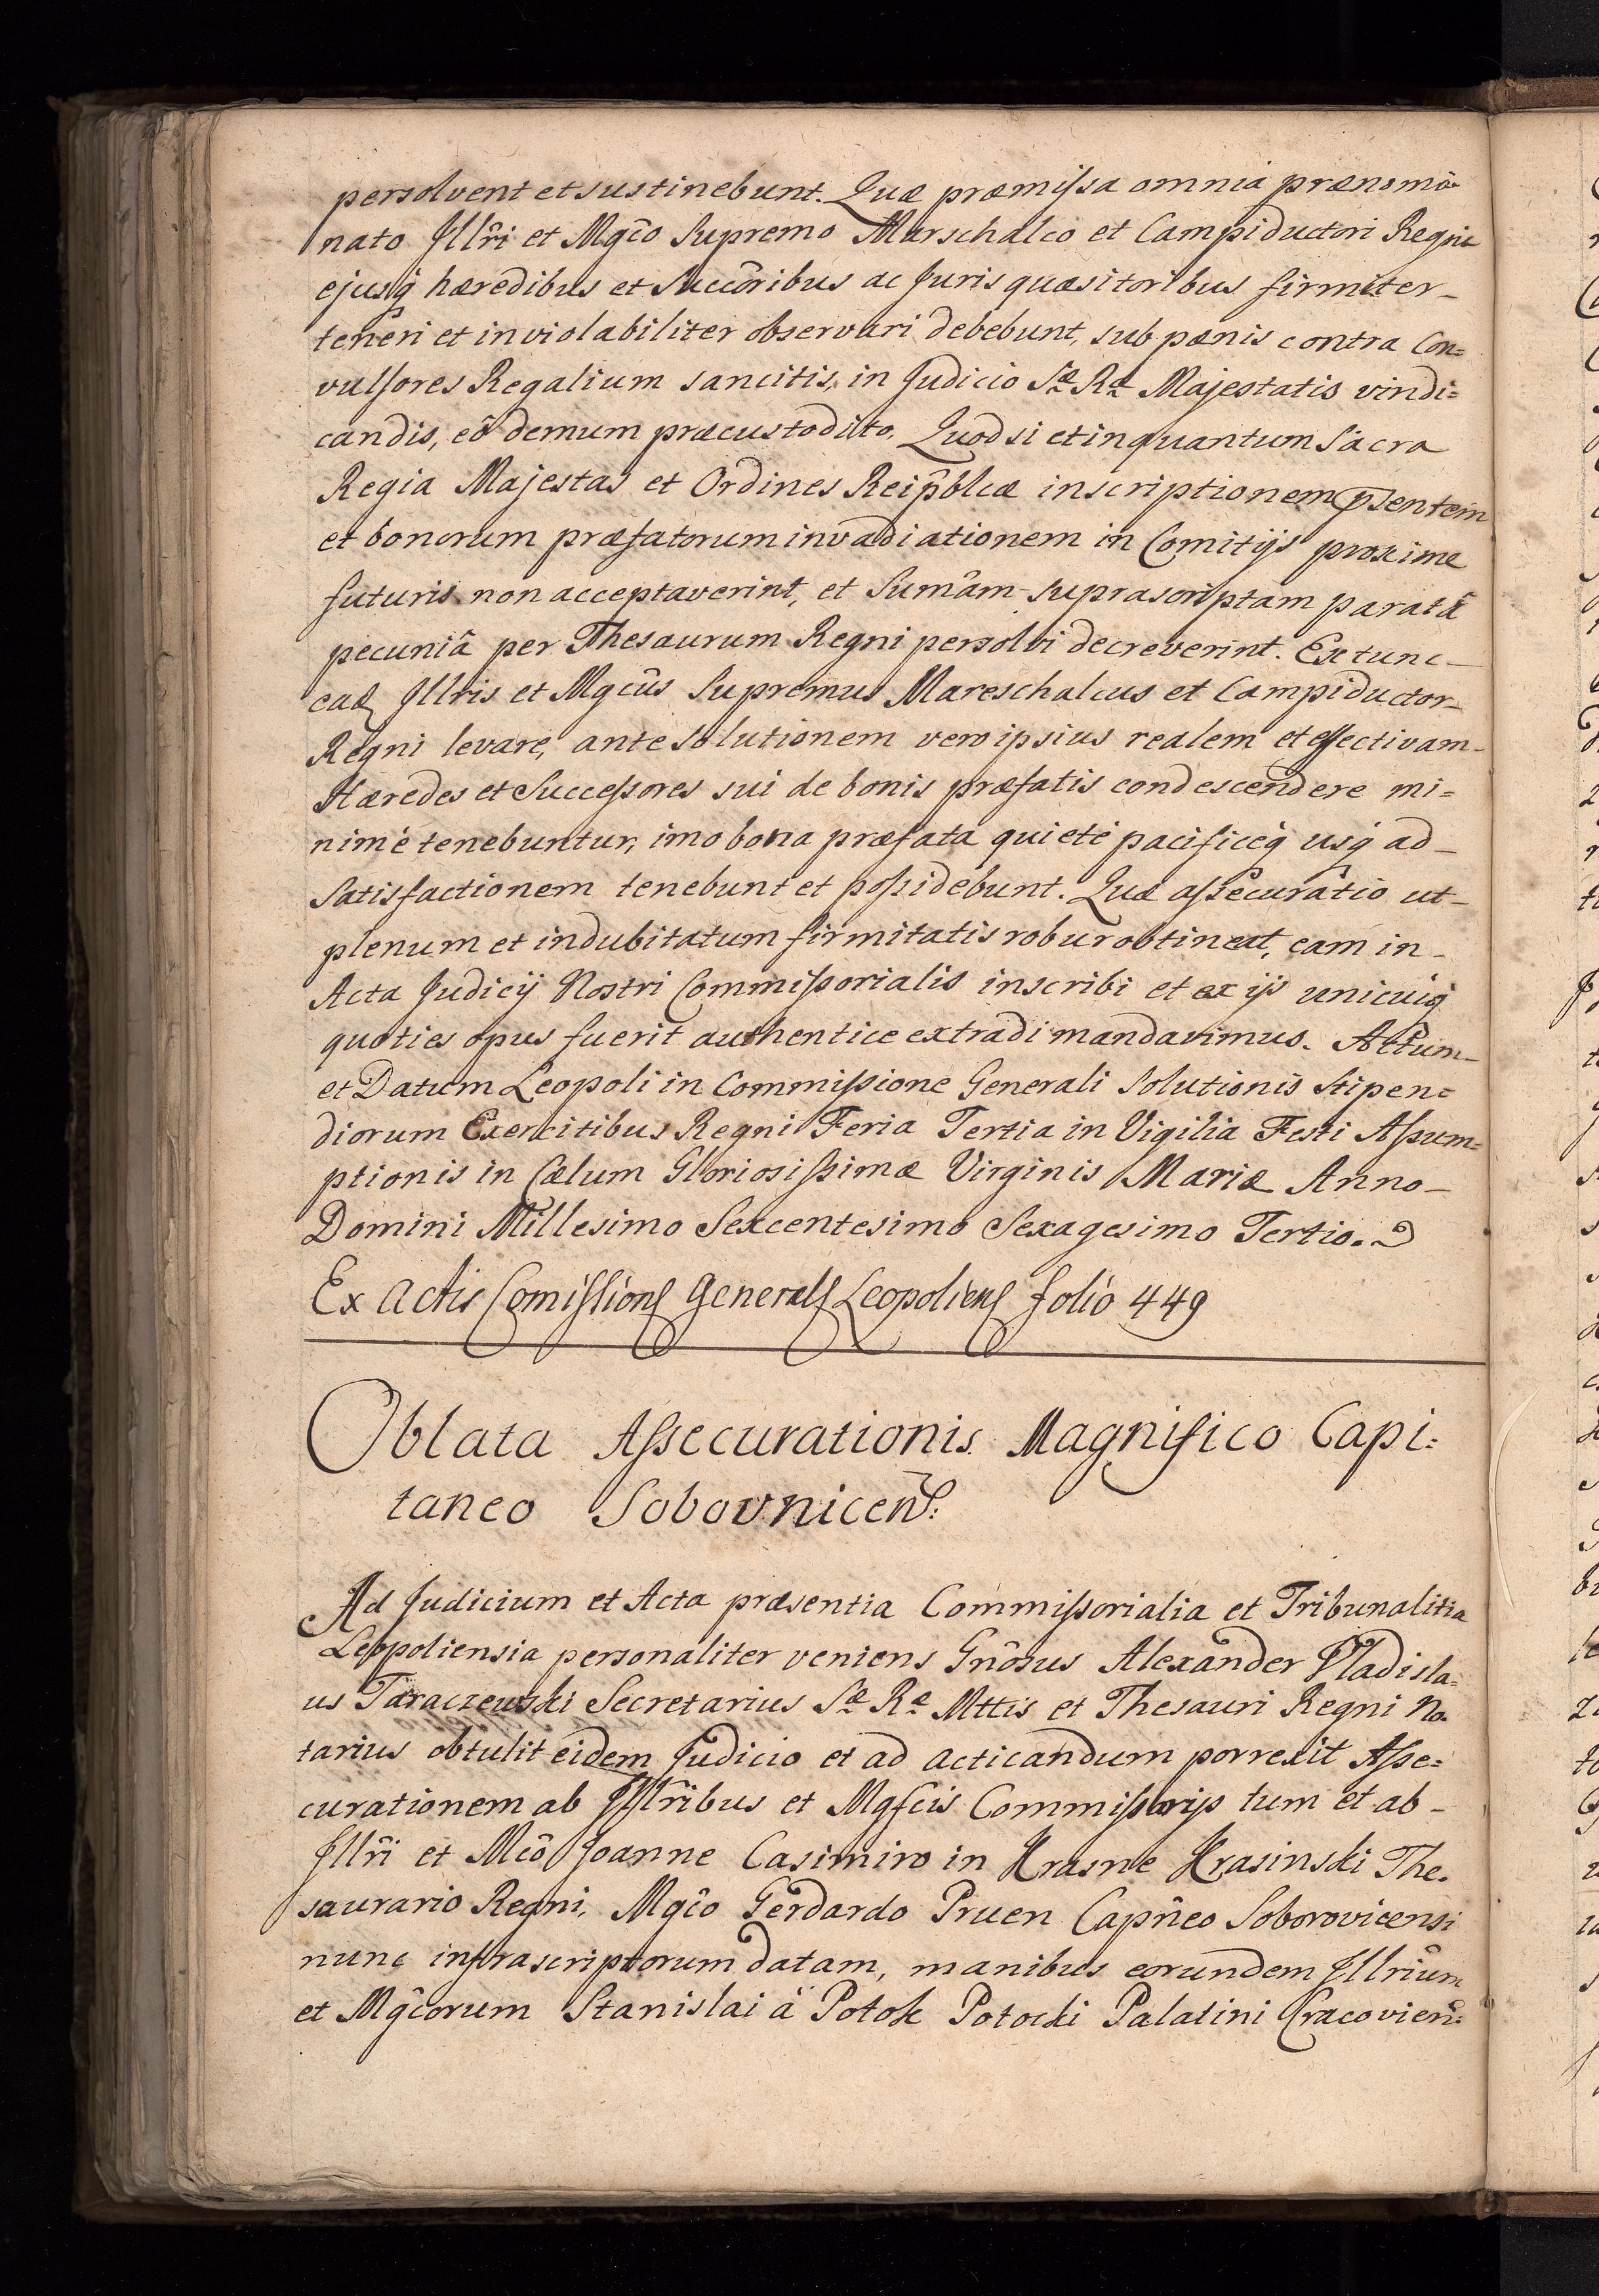 persolvent et sustinebunt. Quæ præmissa omnia prænomi-
nato Illri et Mgco Supremo Marschalco et Campiductori Regni
ejusq hæredibus et Succoribus ac Juris quæsitoribus firmiter
teneri et inviolabiliter observari debebunt, sub pænis contra Con=
vulsores Regalium sancitis, in Judicio Sæ Ræ Majestatis vindi=
candis, eô demum præcustodito, Quod si et inquantum Sacra
Regia Majestas et Ordines Reipblcæ inscriptionem psentem
et bonorum præfatorum invadiationem in Comitijs proxime
futuris non acceptaverint, et Sumâm suprascriptam paratâ
pecuniâ per Thesaurum Regni persolvi decreverint. Ex tunc
Illris et Mgcûs Supremus Mareschalcus et Campiductor
Regni levare, ante solutionem vero ipsius realem et effectivam
Hæredes et Successores sui de bonis præfatis condescendere mi=
nimè tenebuntur, imo bona præfata quietè pacificeq usq ad
satisfactionem tenebunt et possidebunt. Quæ assecuratio ut
plenum et indubitatum firmitatis robur obtineat, eam in
Acta Judicij Nostri Commissorialis inscribi et ex ijs unicuiq
quoties opus fuerit authentice extradi mandavimus. Actum
et Datum Leopoli in Commissione Generali Solutionis Stipen=
diorum Exercitibus Regni Feria Tertia in Vigilia Festi Assum=
ptionis in Cælum Gloriosissimæ Virginis Mariæ Anno
Domini Millesimo Sexcentesimo Sexagesimo Tertio.
Ex Actis Comissions Generals Leopoliens folio 449
Oblata Assecurationis Magnifico Capi=
taneo Sobovnicens:
Ad Judicium et Acta præsentia Commissorialia et Tribunalitia
Leopoliensia personaliter veniens Gnôsus Alexander Vladisla=
us Taraczewski Secretarius Sæ Ræ Mttis et Thesauri Regni No-
tarius obtulit eidem Judicio et ad acticandum porrexit Asse=
curationem ab Illribus et Mgfcis Commissorijs tum et ab
Illri et Mcô Joanne Casimiro in Krasne Krasinski The-
saurario Regni, Mgco Gerdardo Pruen Capneo Soborovicensi
nunc infrascriptorum datam, manibus eorundem Illrium
et Mgcorum Stanislai à Potok Potocki Palatini Cracovien: